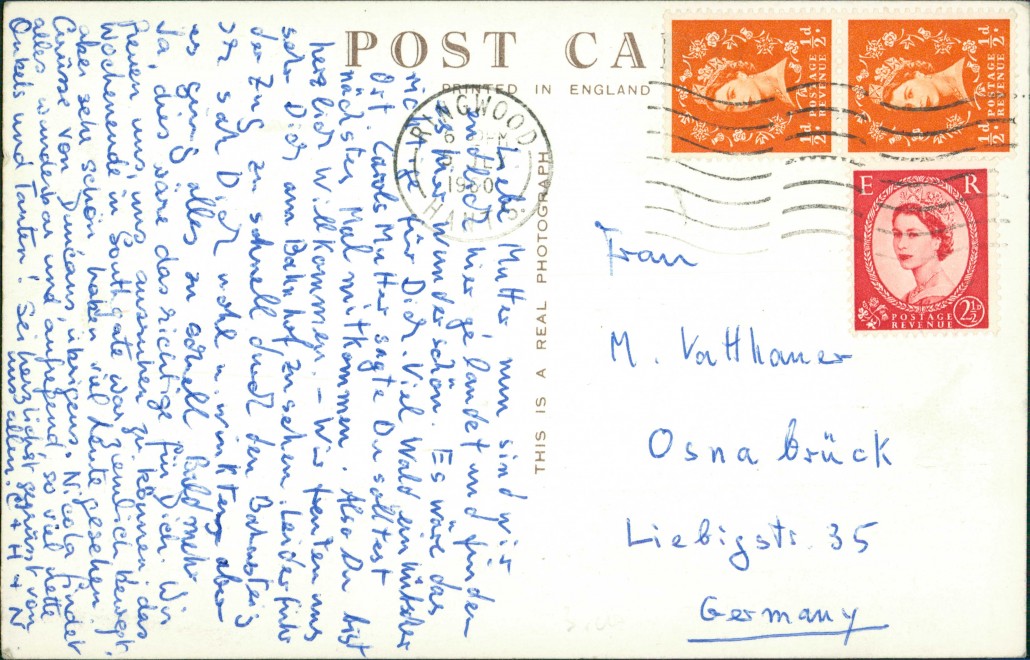 POST CA
PRINTED IN ENGLAND
THIS IS A REAL PHOTOGRAPH
RINGWOOD
1960
HANTS
½d POSTAGE REVENUE ½d
½d POSTAGE REVENUE ½d
E R
POSTAGE REVENUE 2½d
Liebe Mutter, nun sind wir
endlich hier gelandet und finden
es hier wunderschön. Es wäre das
richtige für Dich. Viel Wald ein hübscher
Ort. Carols Mutter sagte Du solltest
nächstes Mal mitkommen. Also Du bist
herzlich willkommen. – Wir freuten uns
sehr Dich am Bahnhof zu sehen. Leider fuhr
der Zug zu schnell durch den Bahnsteig
Ich sah Dich wohl u. winkte, aber
es ging alles zu schnell. Bald mehr
Ja, dies wäre das richtige für Dich. Wir
freuen uns, uns ausruhen zu können, das
Wochenende in Southgate war ziemlich bewegt,
aber sehr schön, haben viel Leute gesehen.
Grüsse von Duncans, übrigens. Nicola findet
alles wunderbar und aufregend, so viel nette
Onkels und Tanten! Sei herzlichst gegrüsst von
uns allen. C + H + N
Frau
M. Vatthauer
Osnabrück
Liebigstr. 35
Germany